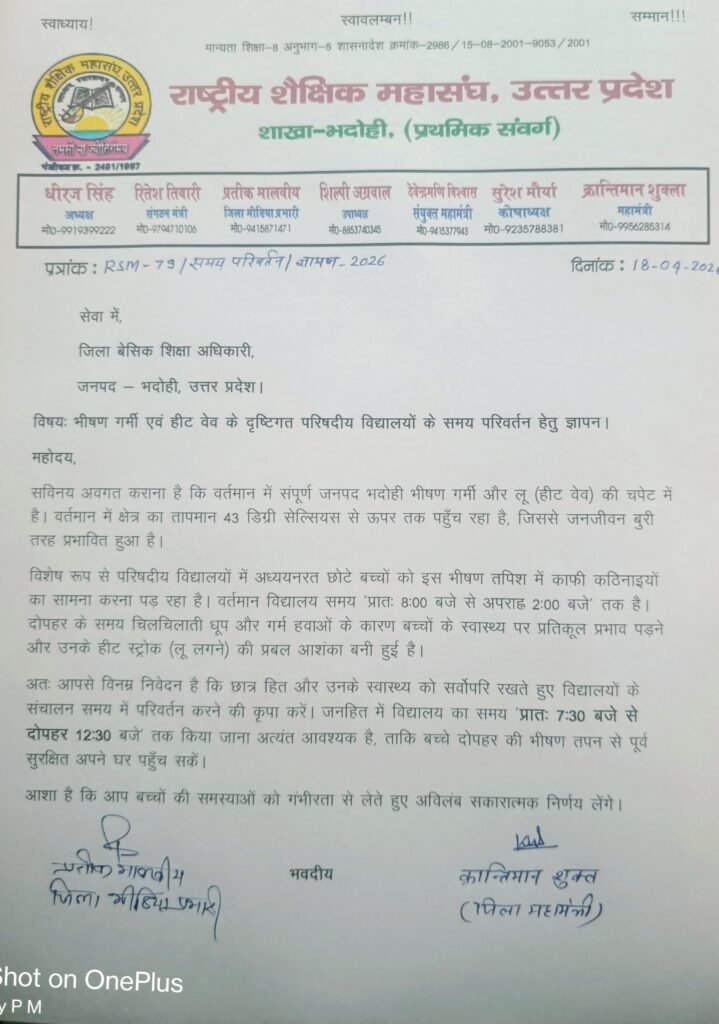 स्वाध्याय! स्वावलम्बन!! सम्मान!!!
मान्यता शिक्षा-8 अनुभाग-5 शासनादेश क्रमांक-2986/15-08-2001-9053/2001
राष्ट्रीय शैक्षिक महासंघ, उत्तर प्रदेश
राष्ट्रीय शैक्षिक महासंघ, उत्तर प्रदेश
शाखा-भदोही, (प्रथमिक संवर्ग)
तमसो मा ज्योतिर्गमय
पंजीयन क्र. - 2491/1997
धीरज सिंह रितेश तिवारी प्रतीक मालवीय शिल्पी अग्रवाल देवेन्द्रमणि विश्वास सुरेश मौर्या क्रान्तिमान शुक्ला
अध्यक्ष संगठन मंत्री जिला मीडिया प्रभारी उपाध्यक्ष संयुक्त महामंत्री कोषाध्यक्ष महामंत्री
मो0-9919399222 मो0-9794710106 मो0-9415871471 मो0-8853740345 मो0-9415377943 मो0-9235788381 मो0-9956285314
पत्रांक : RSM-79/समय परिवर्तन/ज्ञापन-2026 दिनांक : 18-04-2026
सेवा में,
जिला बेसिक शिक्षा अधिकारी,
जनपद – भदोही, उत्तर प्रदेश।
विषयः भीषण गर्मी एवं हीट वेव के दृष्टिगत परिषदीय विद्यालयों के समय परिवर्तन हेतु ज्ञापन।
महोदय,
सविनय अवगत कराना है कि वर्तमान में संपूर्ण जनपद भदोही भीषण गर्मी और लू (हीट वेव) की चपेट में
है। वर्तमान में क्षेत्र का तापमान 43 डिग्री सेल्सियस से ऊपर तक पहुँच रहा है, जिससे जनजीवन बुरी
तरह प्रभावित हुआ है।
विशेष रूप से परिषदीय विद्यालयों में अध्ययनरत छोटे बच्चों को इस भीषण तपिश में काफी कठिनाइयों
का सामना करना पड़ रहा है। वर्तमान विद्यालय समय 'प्रातः 8:00 बजे से अपराह्न 2:00 बजे' तक है।
दोपहर के समय चिलचिलाती धूप और गर्म हवाओं के कारण बच्चों के स्वास्थ्य पर प्रतिकूल प्रभाव पड़ने
और उनके हीट स्ट्रोक (लू लगने) की प्रबल आशंका बनी हुई है।
अतः आपसे विनम्र निवेदन है कि छात्र हित और उनके स्वास्थ्य को सर्वोपरि रखते हुए विद्यालयों के
संचालन समय में परिवर्तन करने की कृपा करें। जनहित में विद्यालय का समय 'प्रातः 7:30 बजे से
दोपहर 12:30 बजे' तक किया जाना अत्यंत आवश्यक है, ताकि बच्चे दोपहर की भीषण तपन से पूर्व
सुरक्षित अपने घर पहुँच सकें।
आशा है कि आप बच्चों की समस्याओं को गंभीरता से लेते हुए अविलंब सकारात्मक निर्णय लेंगे।
भवदीय
प्रतीक मालवीय क्रान्तिमान शुक्ल
जिला मीडिया प्रभारी (जिला महामंत्री)
Shot on OnePlus
y P M